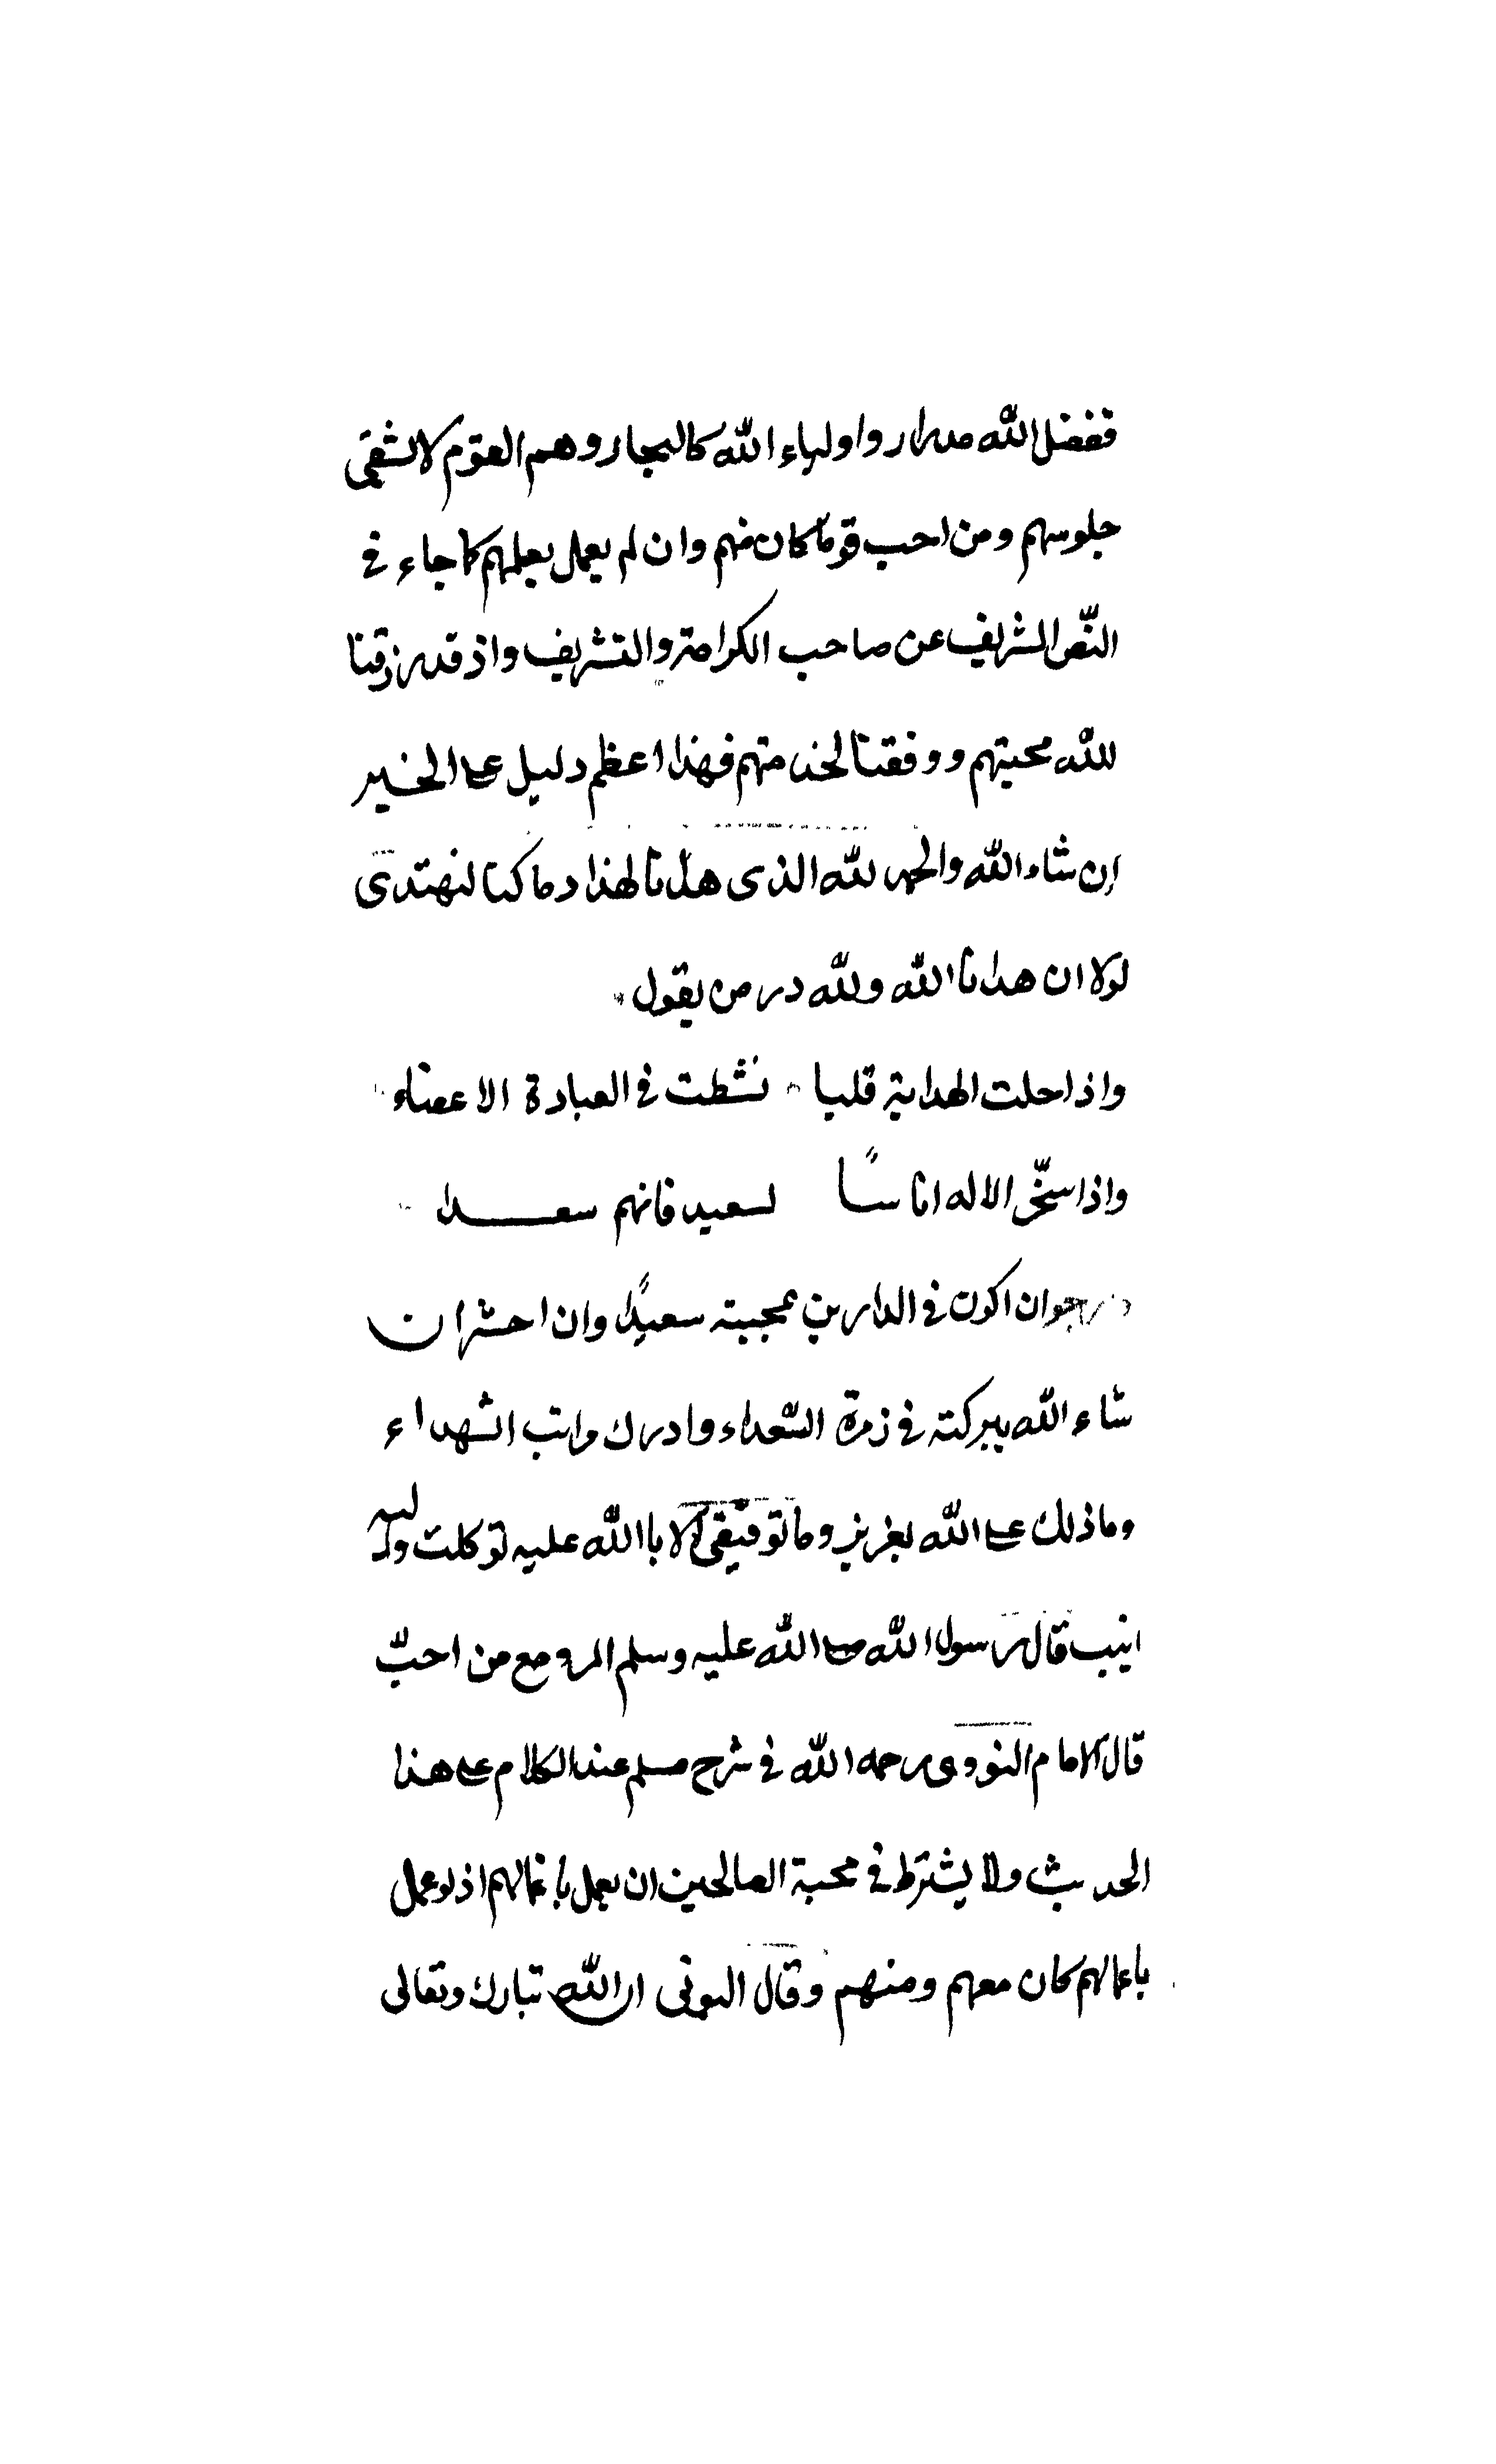 ففضل الله مدرار واولياء الله كالبحار وهم القوم لا يشقى
جلوسهم ومن احب قوما كان منهم وان لم يعمل بعملهم كما جاء في
النّص الشريف عن صاحب الكرامة والتشريف واذ قد رزقنا
لله محبتهم ووفقنا لخدمتهم فهذا اعظم دليل على الخير
إن شاء الله والحمد لله الذى هدانا لهذا وما كنا لنهتدى
لولا ان هدانا الله ولله در من يقول
واذا حلت الهداية قلبا نشطت في العبادة الاعضاء
واذا سخّر الاله اناسًا لسعيد فانهم سعدا
وارجوان اكون في الدارين بمحبته سعيدًا وان احشر ان
شاء الله ببركته في زمرة السّعداء وادرك مراتب الشهداء
وما ذلك على الله بعزيز وما توفيقى الا باالله عليه توكلت واليه
انيب قال رسول الله صلى الله عليه وسلم المرء مع من احبّ
قال الامام النووى رحمه الله في شرح مسلم عند الكلام على هذا
الحديث ولا يشترط في محبة الصالحين ان يعمل باعمالهم اذ لو عمل
باعمالهم كان معهم ومنهم وقال البونى ان الله تبارك وتعالى